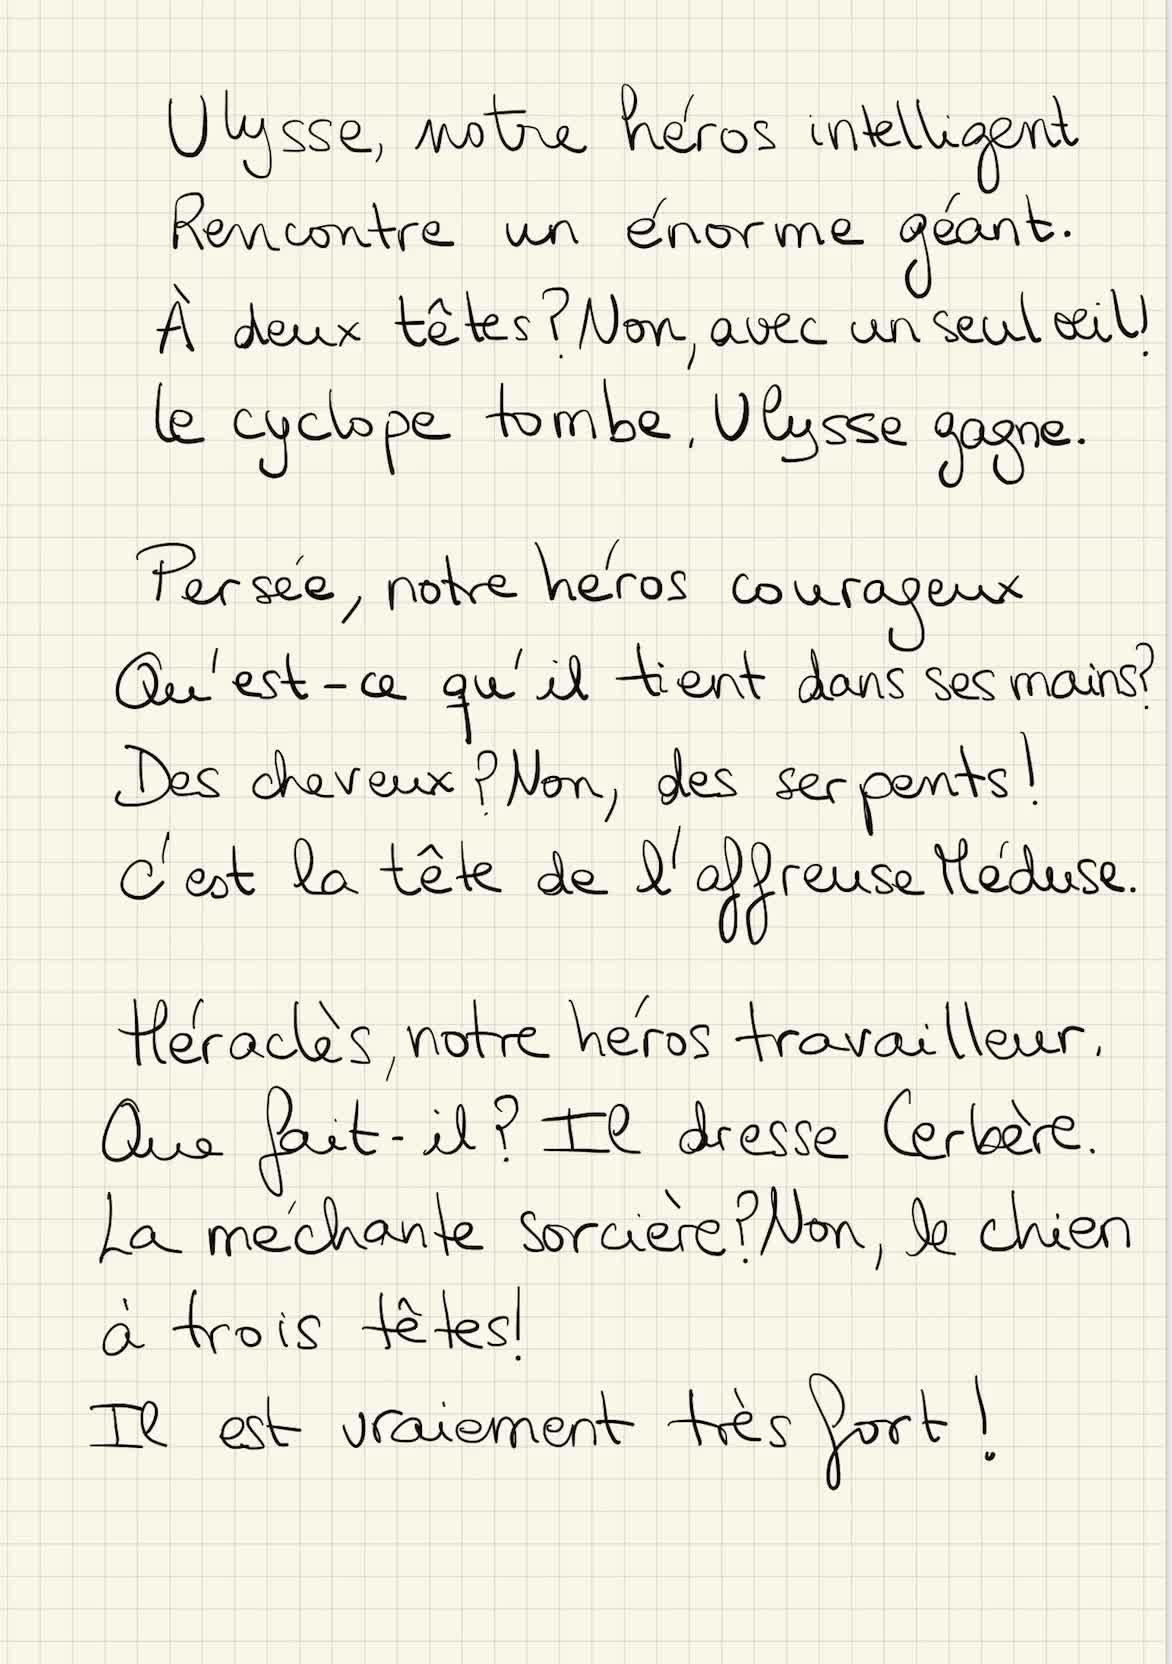 Ulysse, notre héros intelligent
Rencontre un énorme géant.
À deux têtes? Non, avec un seul œil!
Le cyclope tombe, Ulysse gagne.
Persée, notre héros courageux
Qu'est-ce qu'il tient dans ses mains?
Des cheveux? Non, des serpents!
C'est la tête de l'affreuse Méduse.
Héraclès, notre héros travailleur.
Que fait-il? Il dresse Cerbère.
La méchante sorcière? Non, le chien
à trois têtes!
Il est vraiement très fort!